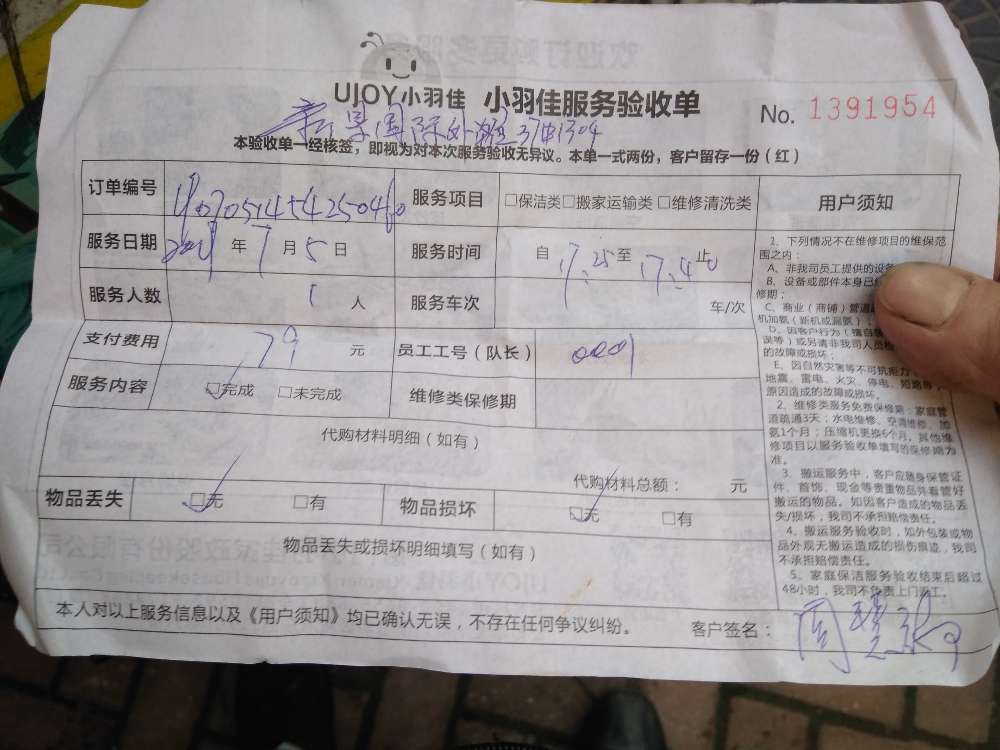 UJOY小羽佳 小羽佳服务验收单
No. 1391954
景国际外滩37#1304
本验收单一经核签，即视为对本次服务验收无异议。本单一式两份，客户留存一份（红）
订单编号
服务项目 □保洁类□搬家运输类□维修清洗类
服务日期 年7月5日
服务时间 自17.25至17.40止
服务人数 1人
服务车次 车/次
支付费用 79元
员工工号（队长） 0001
服务内容 □完成 □未完成
维修类保修期
代购材料明细（如有）
代购材料总额： 元
物品丢失 □无 □有
物品损坏 □无 □有
物品丢失或损坏明细填写（如有）
本人对以上服务信息以及《用户须知》均已确认无误，不存在任何争议纠纷。
客户签名：
用户须知
1、下列情况不在维修项目的维保范
围之内：
A、非我司员工提供的设备
B、设备或部件本身已
修期；
C、商业（商铺）管道
机加氨（新机或漏氨）；
D、因客户行为（擅自
误等）或另请非我司人员
的故障或损坏；
E、因自然灾害等不可抗拒力
地震、雷电、火灾、停电、短路等
原因造成的故障或损坏。
2、维修类服务免费保修期：家庭管
道疏通3天；水电维修、空调维修、加
氨1个月；压缩机更换6个月，其他维
修项目以服务验收单填写的保修期为
准。
3、搬运服务中，客户应随身保管证
件、首饰、现金等贵重物品并看管好
搬运的物品。如因客户造成的物品丢
失/损坏，我司不承担赔偿责任。
4、搬运服务验收时，如外包装或物
品外观无搬运造成的损伤痕迹，我司
不承担赔偿责任。
5、家庭保洁服务验收结束后超过
48小时，我司不负责上门返工。